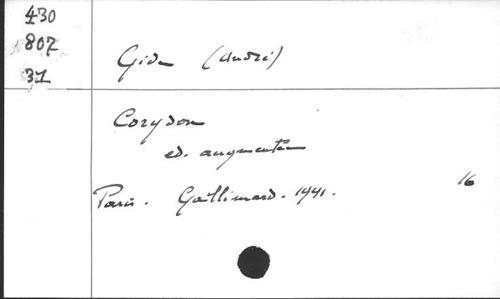 430
807
31
Gide (André)
Corydon
ed. augmentée
Paris. Gallimard. 1941.
16